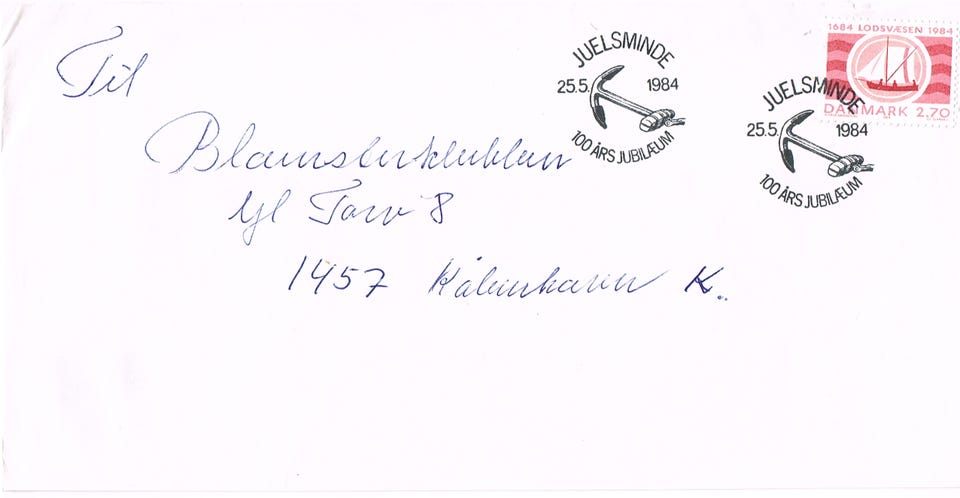 Til
Blomsterklubben
Gl Torv 8
1457 København K.
JUELSMINDE
25.5. 1984
100 ÅRS JUBILÆUM
JUELSMINDE
25.5. 1984
100 ÅRS JUBILÆUM
1684 LODSVÆSEN 1984
DANMARK 2.70